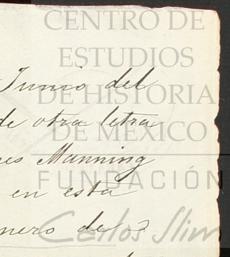 CENTRO DE
ESTUDIOS
Junio del
DE HISTORIA
de otra letra
DE MÉXICO
es Manning
FUNDACIÓN
en esta
Carlos Slim
nero de